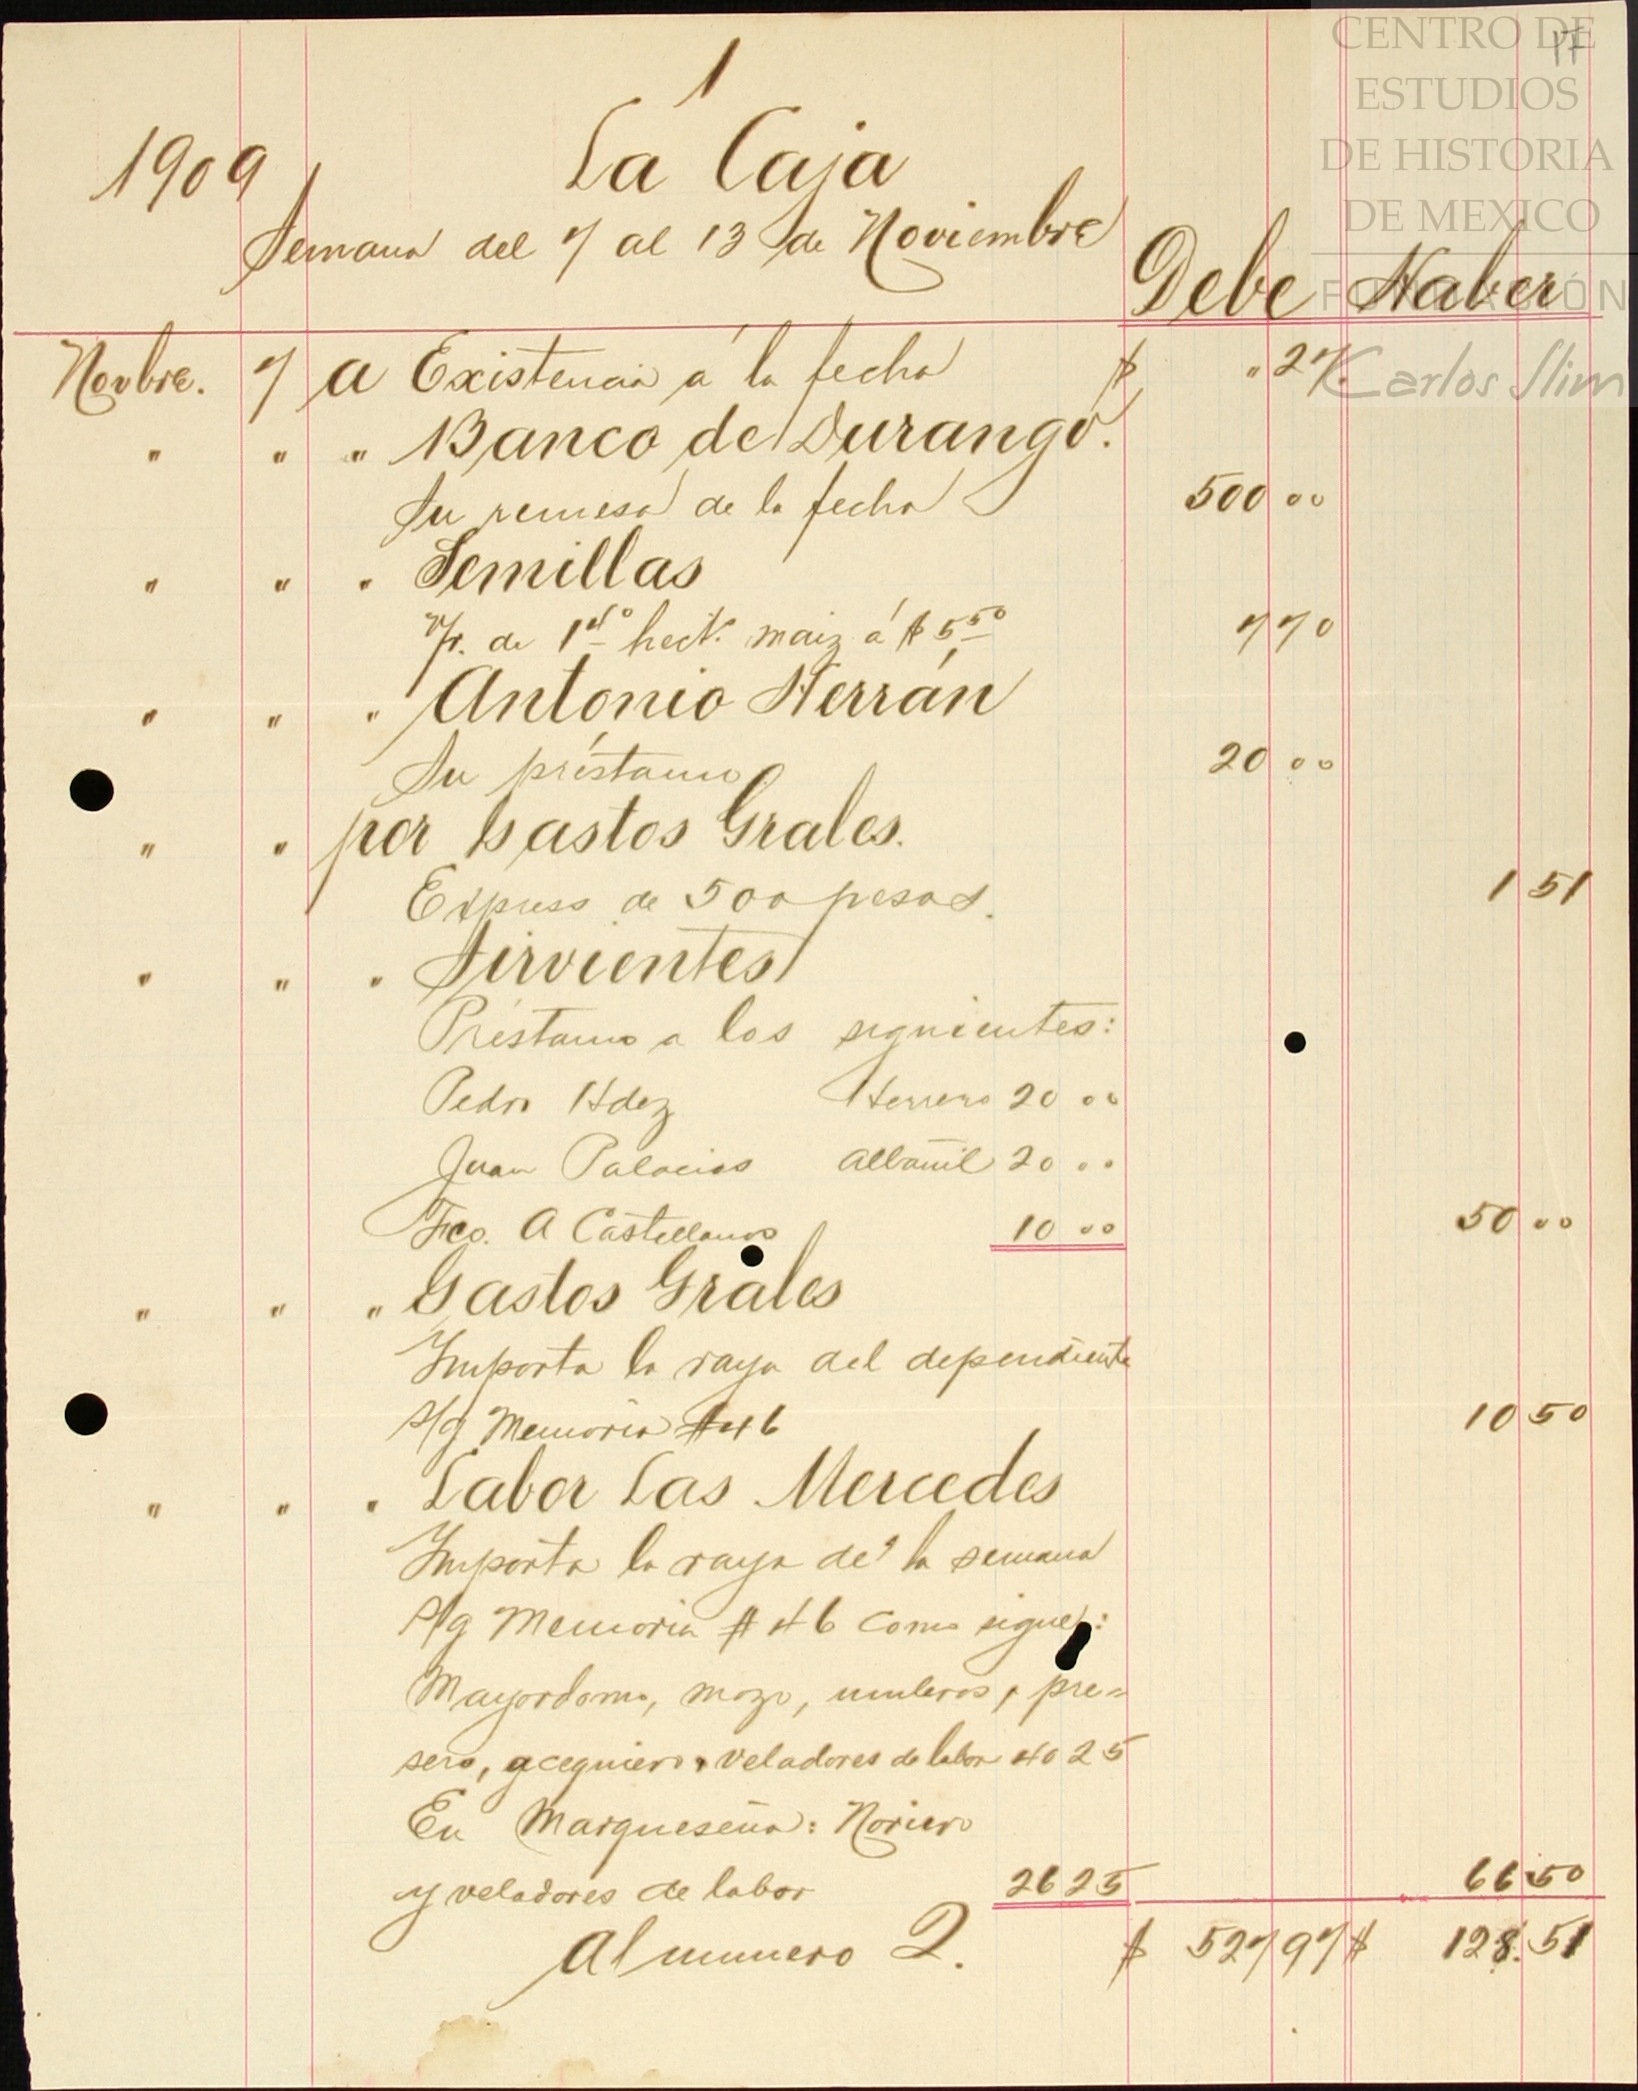 CENTRO DE
ESTUDIOS
DE HISTORIA
DE MEXICO
FUNDACIÓN
Carlos Slim
17
1
1909 La Caja
Semana del 7 al 13 de Noviembre
Debe Haber
Novbre. 7 a Existencia á la fecha $ " 27
" " " Banco de Durango.
Su remesa de la fecha 500 00
" " " Semillas
V/r. de 1 40 hect. maiz á $ 5 50 7 70
" " " Antonio Herrán
Su préstamo 20 00
" " por Gastos Grales.
Express de 500 pesos. 1 51
" " " Sirvientes
Préstamo a los siguientes:
Pedro Hdez Herrero 20 00
Juan Palacios Albañil 20 00
Fco. A Castellanos 10 00 50 00
" " " Gastos Grales
Importa la raya del dependiente
s/g Memoria # 46 10 50
" " " Labor Las Mercedes
Importa la raya de la semana
s/g Memoria # 46 como sigue:
Mayordomo, mozo, muleros, pre=
sero, acequiero, veladores de labor 40 25
En Marqueseña: Noriero
y veladores de labor 26 25 66 50
Al numero 2. $ 527 97 $ 128.51